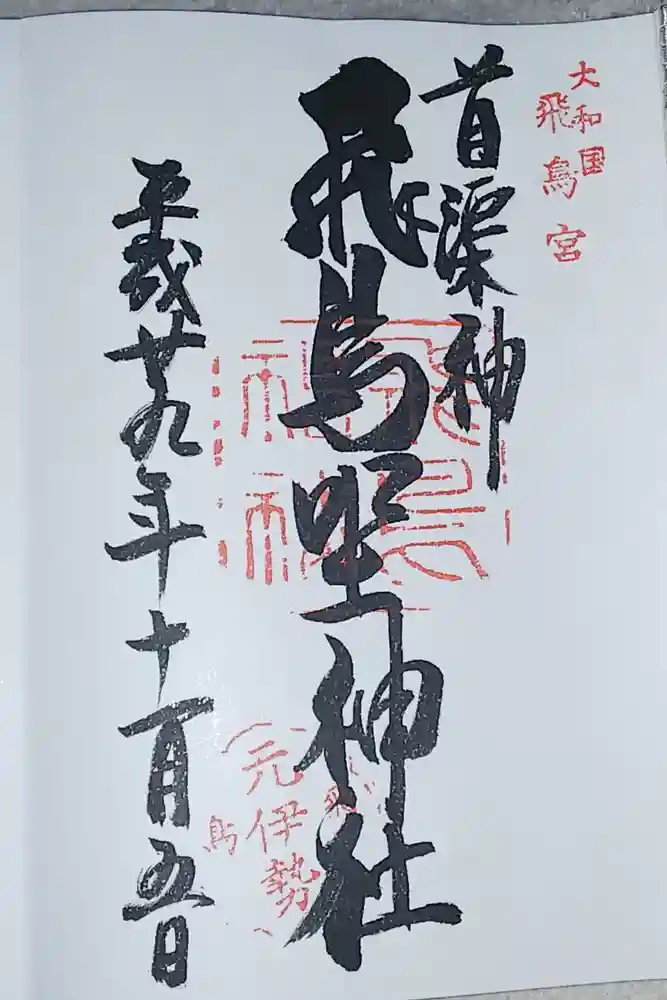 大和国
飛鳥宮
首渠神
飛鳥坐神社
平成廿九年十一月五日
飛鳥
神社
元伊勢
飛
鳥